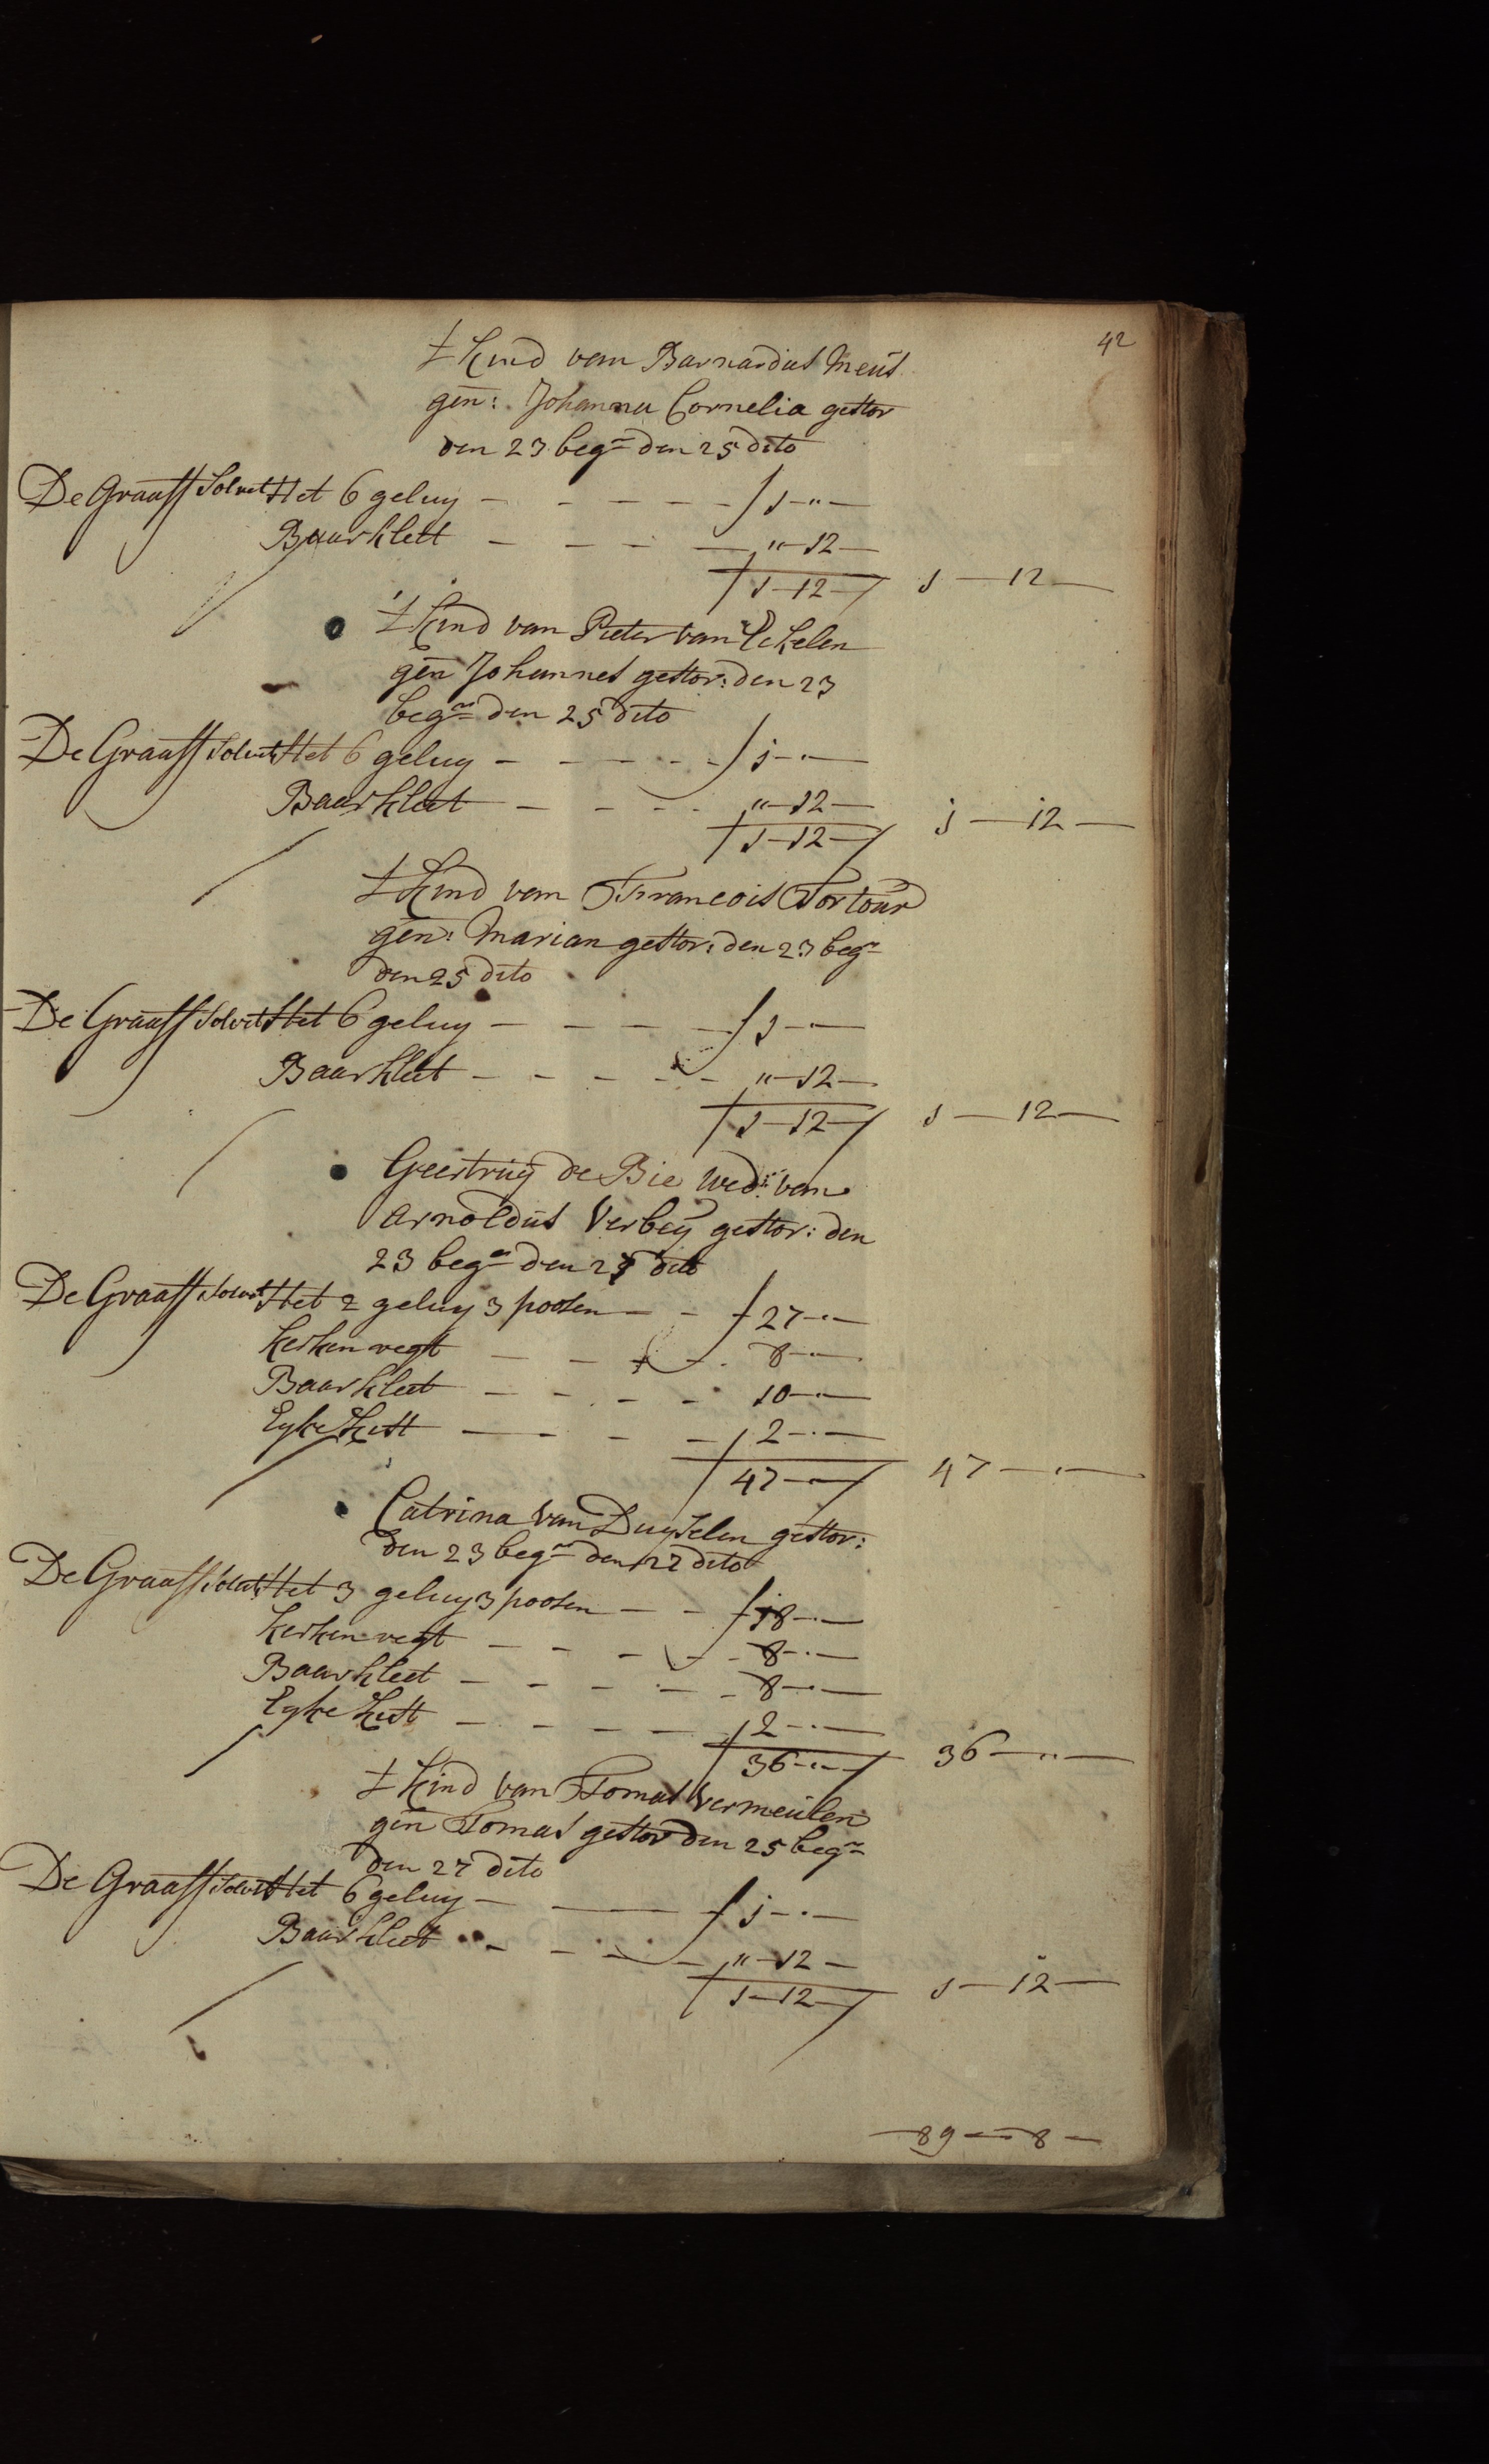 42
t Kind van Barnardus Meus
gen: Johanna Cornelia gestor
den 23 beg~ den 25 dito
De Graaff Solvit Het 6 geluy - - - - - / 1-"-
Baarkleet - - - - "-12-
/ 1-12-/ 1-12-
't Kind van Pieter van
gen Johannes gestor: den 23
beg~ den 25 dito
De Graaff Solvit Het 6 geluy - - - - - / 1-"-
Baarkleet - - - - "-12-
/ 1-12-/ 1-12-
t Kind van Francois Tortour
gen: Marian gestor: den 23 beg~
den 25 dito
De Graaff Solvit Het 6 geluy - - - - / 1-"-
Baarkleet - - - - - "-12-
/ 1-12-/ 1-12-
Geertruij de Bie wed: van
Arnoldus Verbeij gestor: den
23 beg~ den 27 dito
De Graaff Solvit Het 2 geluy 3 poosen - - / 27-"-
kerken regt - - - - 8-"-
Baarkleet - - - - 10-"-
Eyke Kist - - - - / 2-"-
/ 47-"-/ 47-"-
Catrina van Duyselen gestor:
den 23 beg~ den 27 dito
De Graaff Solvit Het 3 geluy 3 poosen - - / 18-"-
kerken regt - - - - 8-"-
Baarkleet - - - - - 8-"-
Eyke Kist - - - - / 2-"-
/ 36-"-/ 36-"-
t Kind van Tomas Vermeulen
gen Tomas gestor den 25 beg~
den 27 dito
De Graaff Solvit Het 6 geluy - - / 1-"-
Baarkleet - - - - "-12-
/ 1-12-/ 1-12-
89-8-